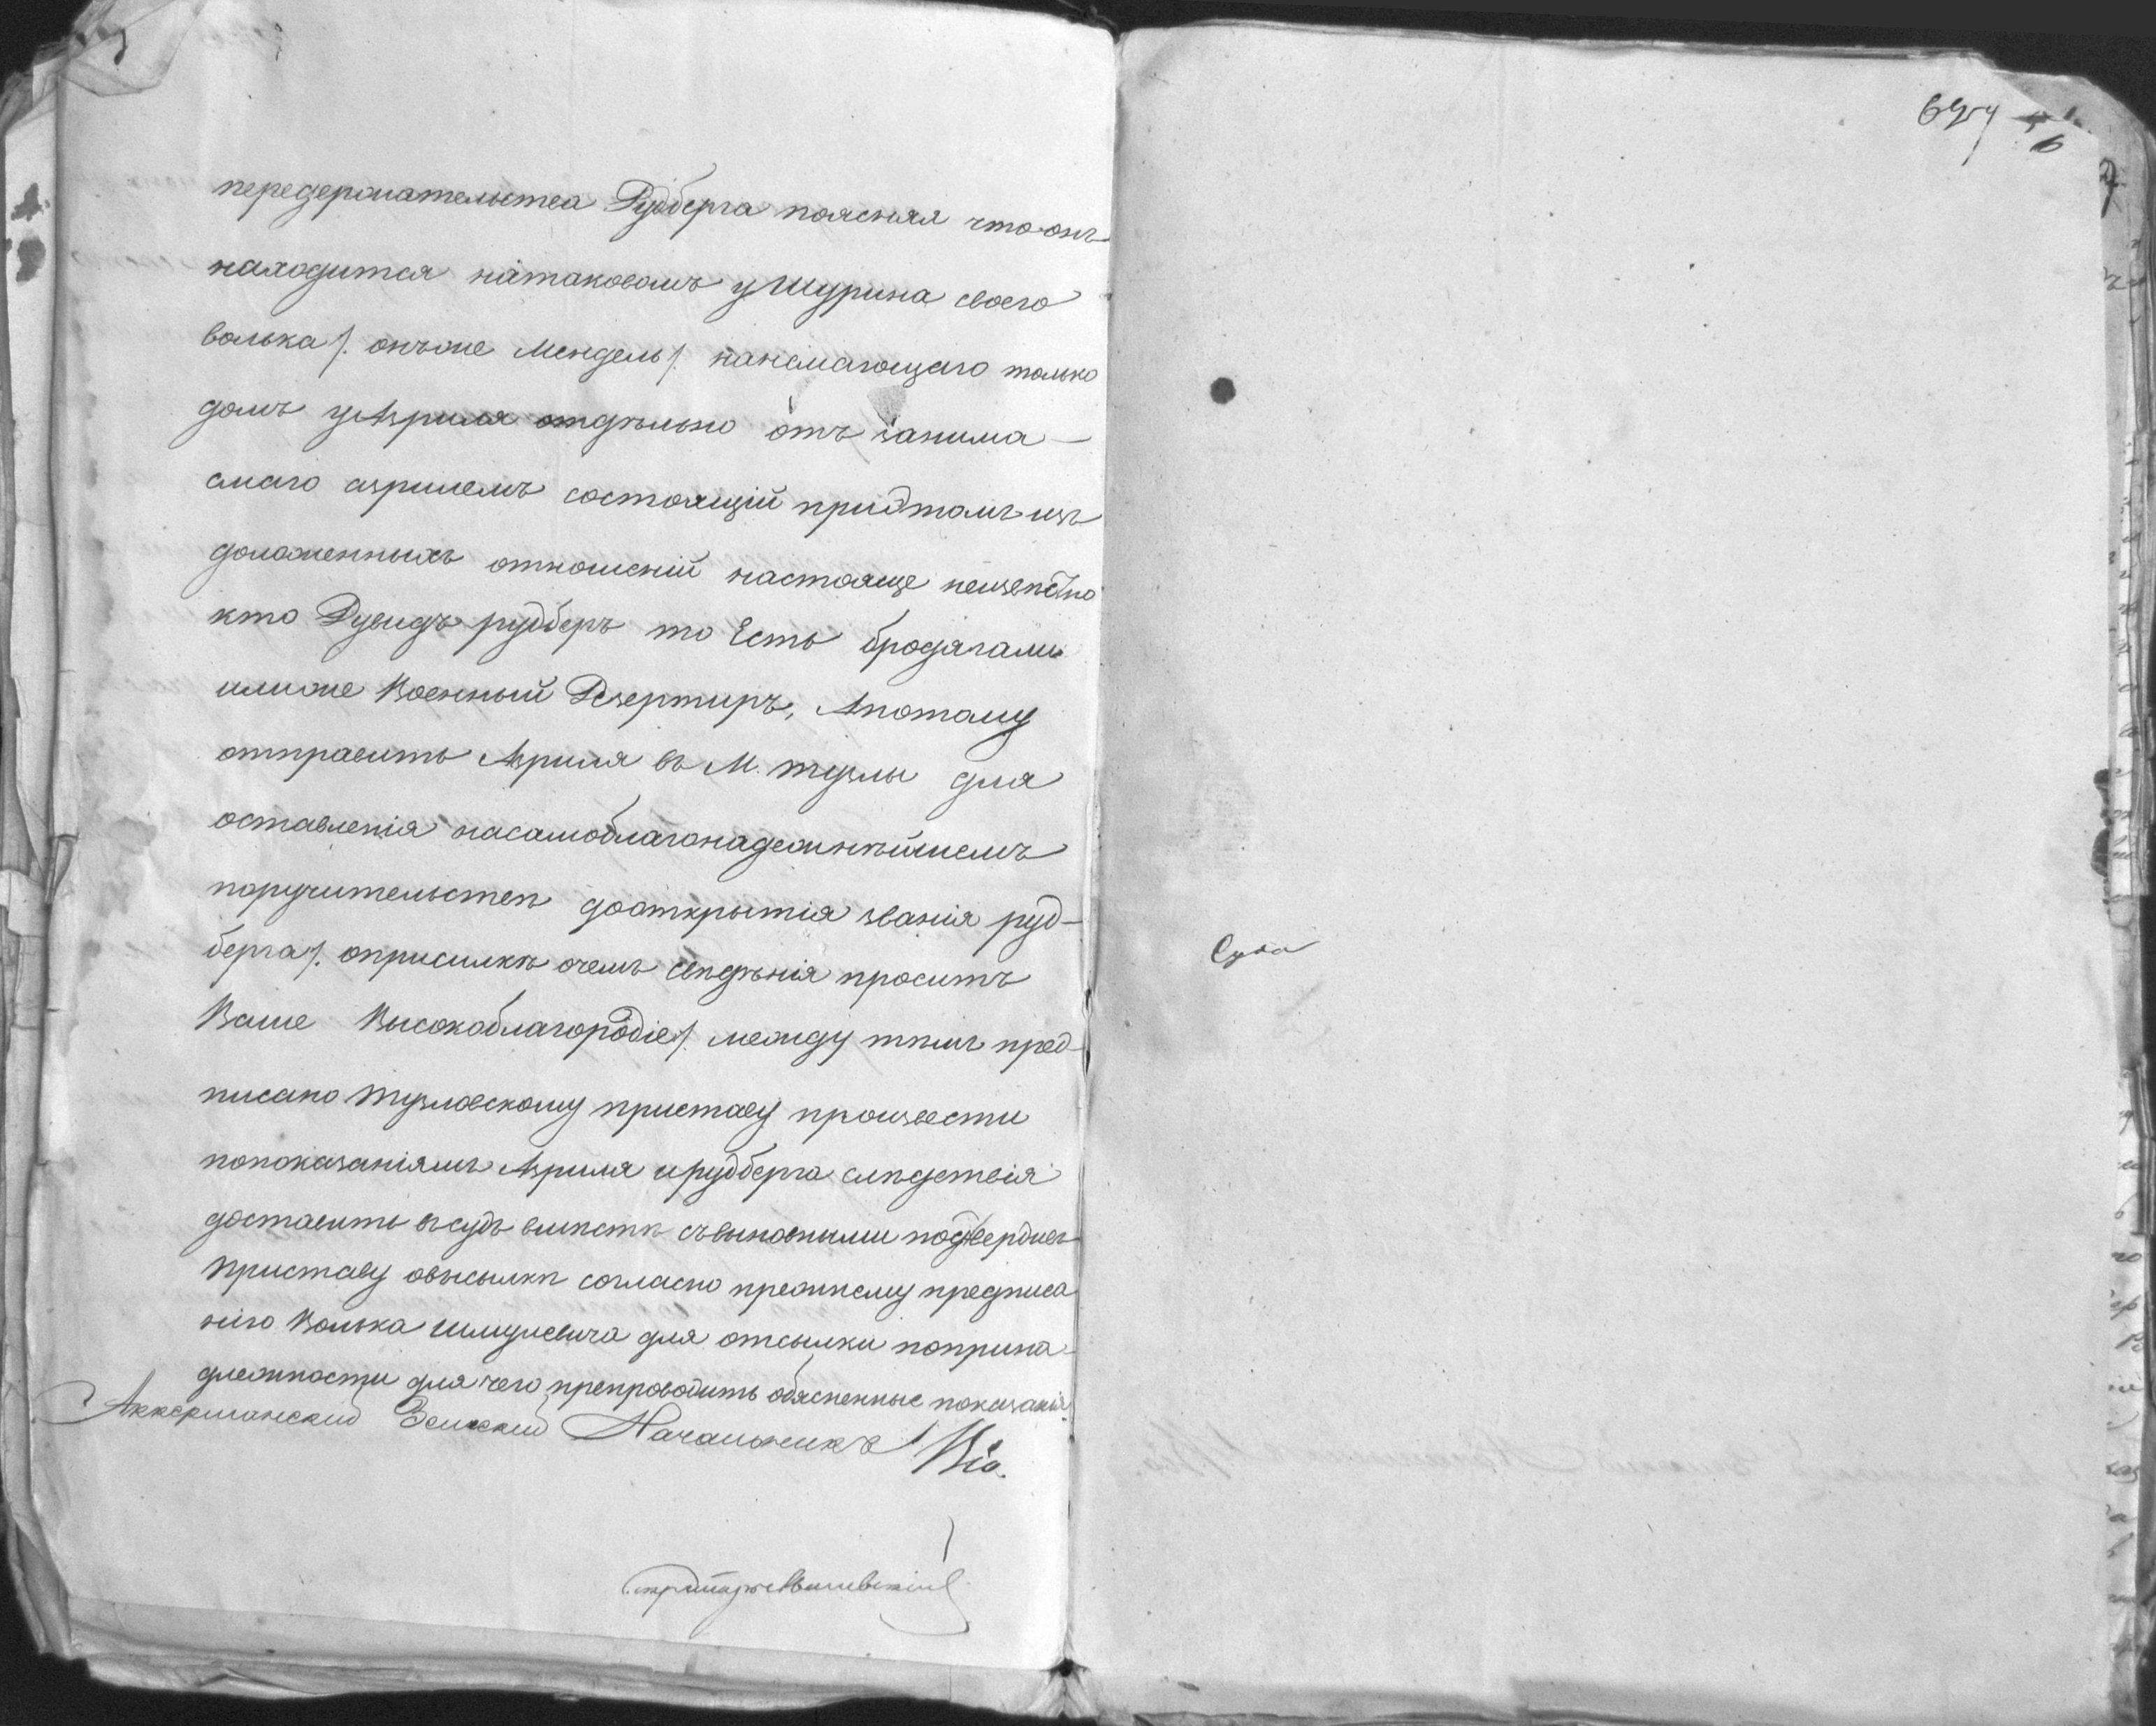 передержательства Рудберга поясняя что онъ
находится натаковомъ у Шурина своего
волька /. онъже Мендель /. нанемающаго только
домъ у Азриля отдѣльно отъ занима-
емаго азрилемъ состоящій придтомъ изъ
доложенныхъ отношеній настояще неизвѣстно
кто Дувидъ рудберъ то Есть бродяга ли
илиже Военный Дезертиръ, Апотому
отправить Азриля въ М. тузлы для
оставленія насамоблагонадежнѣйшемъ
поручительствѣ дооткрытія званія руд-
берга /. оприсилкѣ очемъ свѣдѣнія проситъ
Ваше Высокоблагородіе /. между тѣмъ пред-
писано тузловскому приставу произвести
попоказаніямъ Азриля ирудберга слѣдствія
доставить въсудъ вмѣстѣ съвиновными подтвердивъ
приставу овысылкѣ согласно прежнему предписа
нію Волька шмулевича для отсылки поприна-
длежности для чего препроводить обясненные показанія.
Аккерманский Земский Начальникъ
Секретарь
6
Суда